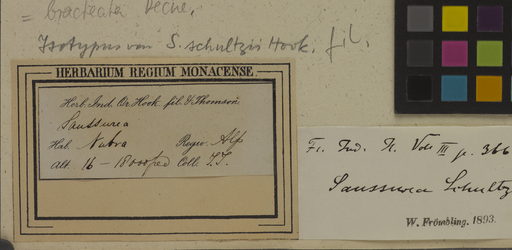 = bracteata Decne.
Isotypus von S. schultzii Hook. fil.
HERBARIUM REGIUM MONACENSE
Herb. Ind. Or. Hook. fil. & Thomson.
Saussurea
Hab. Nubra Regio Alp
Alt. 16-18000 ped Coll. T.T.
Fl. Ind. N. Vol. III p. 366
Saussurea Schultz
W. Frömbling. 1893.